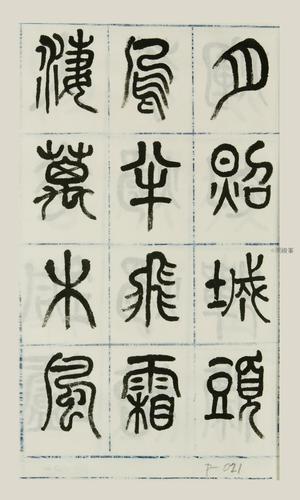 月照城頭
烏半飛霜
淒萬木風
P-021